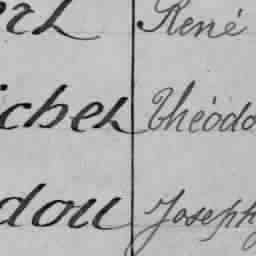 René
ichel Théodo
dou Joseph